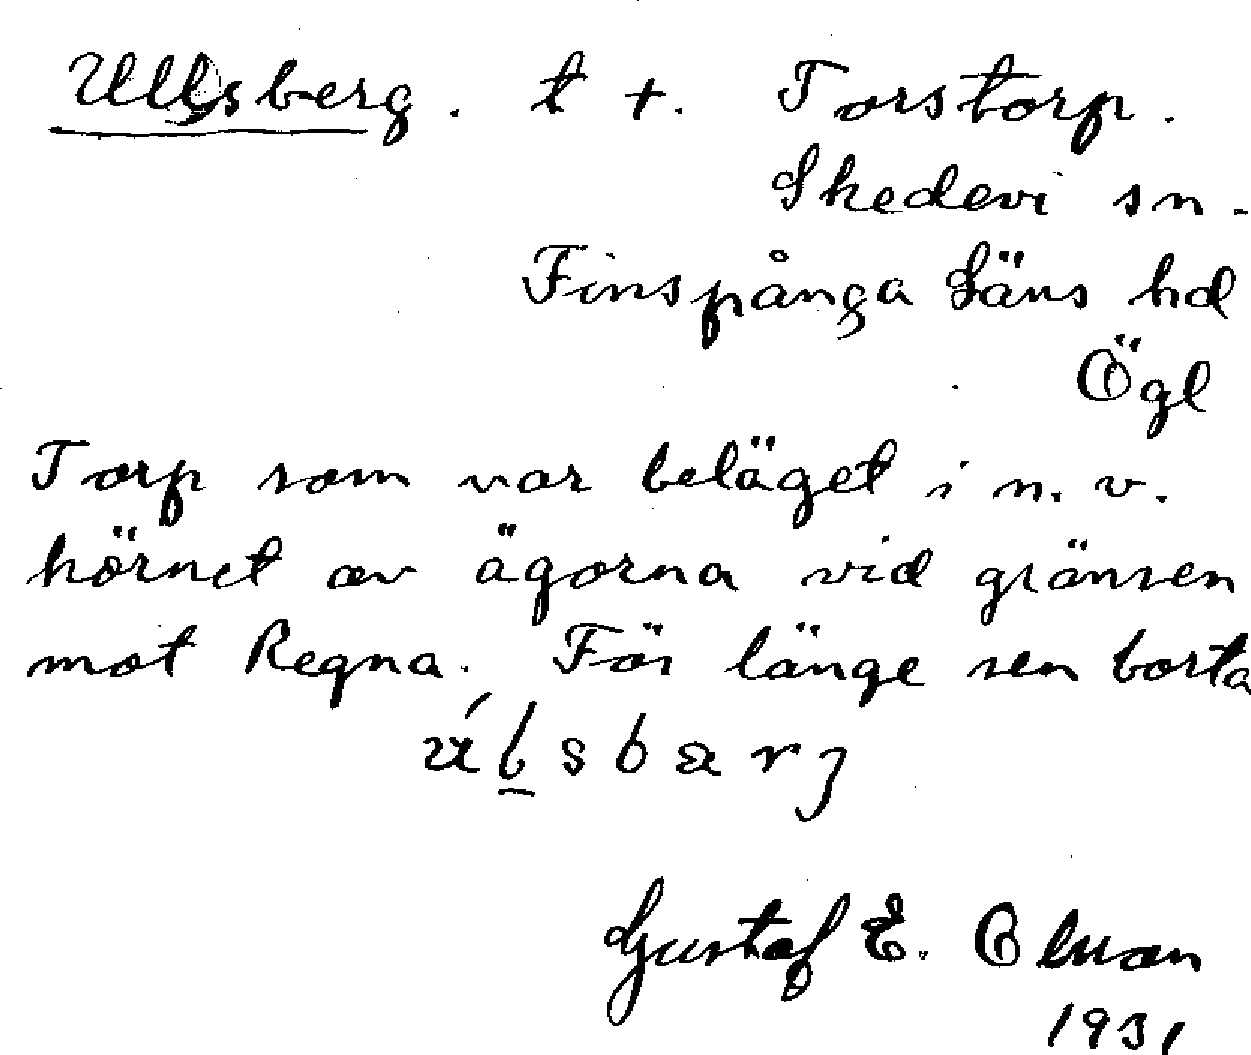 Ullsberg. t t. Torstorp.
Skedevi sn.
Finspånga Läns hd
Ögl
Torp som var beläget i n. v.
hörnet av ägorna vid gränsen
mot Regna. För länge sen borta
Gustaf E. Olman
1931